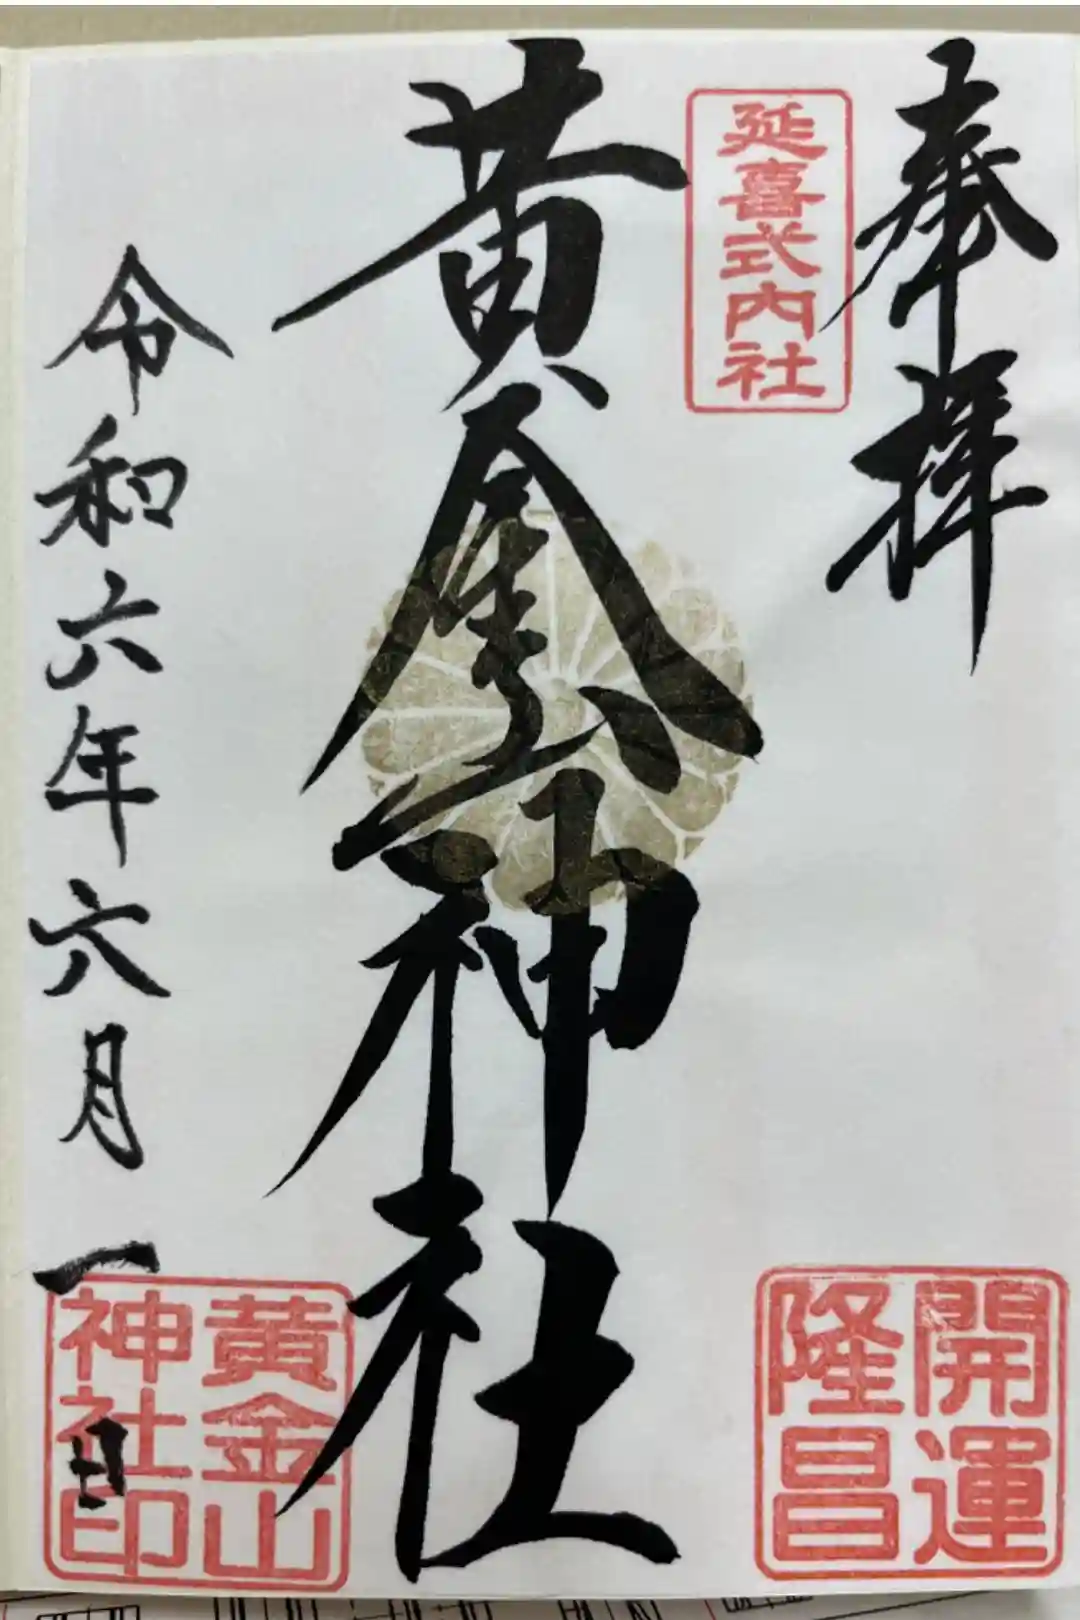 奉拝
延喜式内社
開運
隆昌
黄金山神社
令和六年六月一日
黄金山
神社印